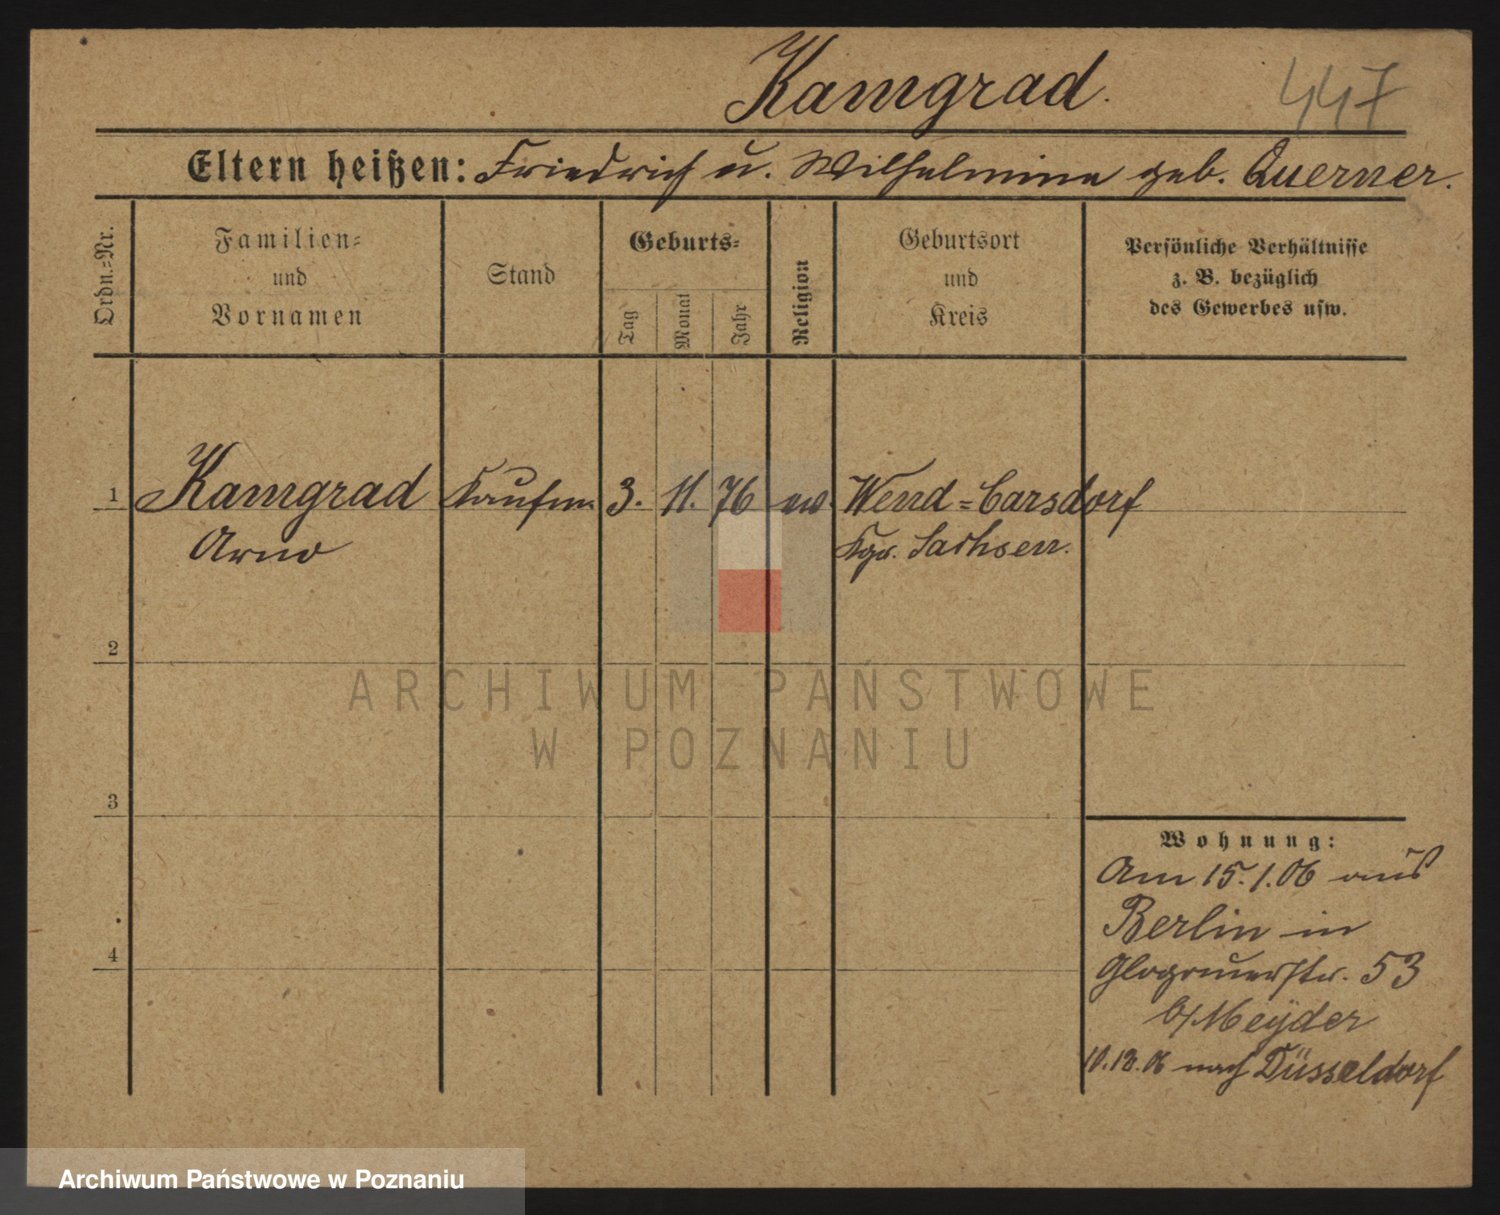 Kamgrad.
447
Eltern heißen: Friedrich u. Wilhelmine geb. Querner.
Ordn.-Nr.
Familien-
und
Vornamen
Stand
Geburts-
Tag
Monat
Jahr
Religion
Geburtsort
und
Kreis
Persönliche Verhältnisse
z. B. bezüglich
des Gewerbes usw.
1 Kamgrad Kaufm. 3. 11. 76 ev. Wend-Carsdorf
Arno Kgr. Sachsen.
2
3
4
Wohnung:
Am 15.1.06 aus
Berlin in
Glogauerstr. 53
b/Meyder
10.12.06 nach Düsseldorf
ARCHIWUM PAŃSTWOWE
W POZNANIU
Archiwum Państwowe w Poznaniu